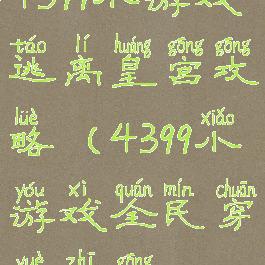 游戏
táo lí huáng gōng gōng
逃离皇宫攻
lüè xiǎo
略（4399小
yóu xì quán mín chuān
游戏全民穿
yuè zhī gōng